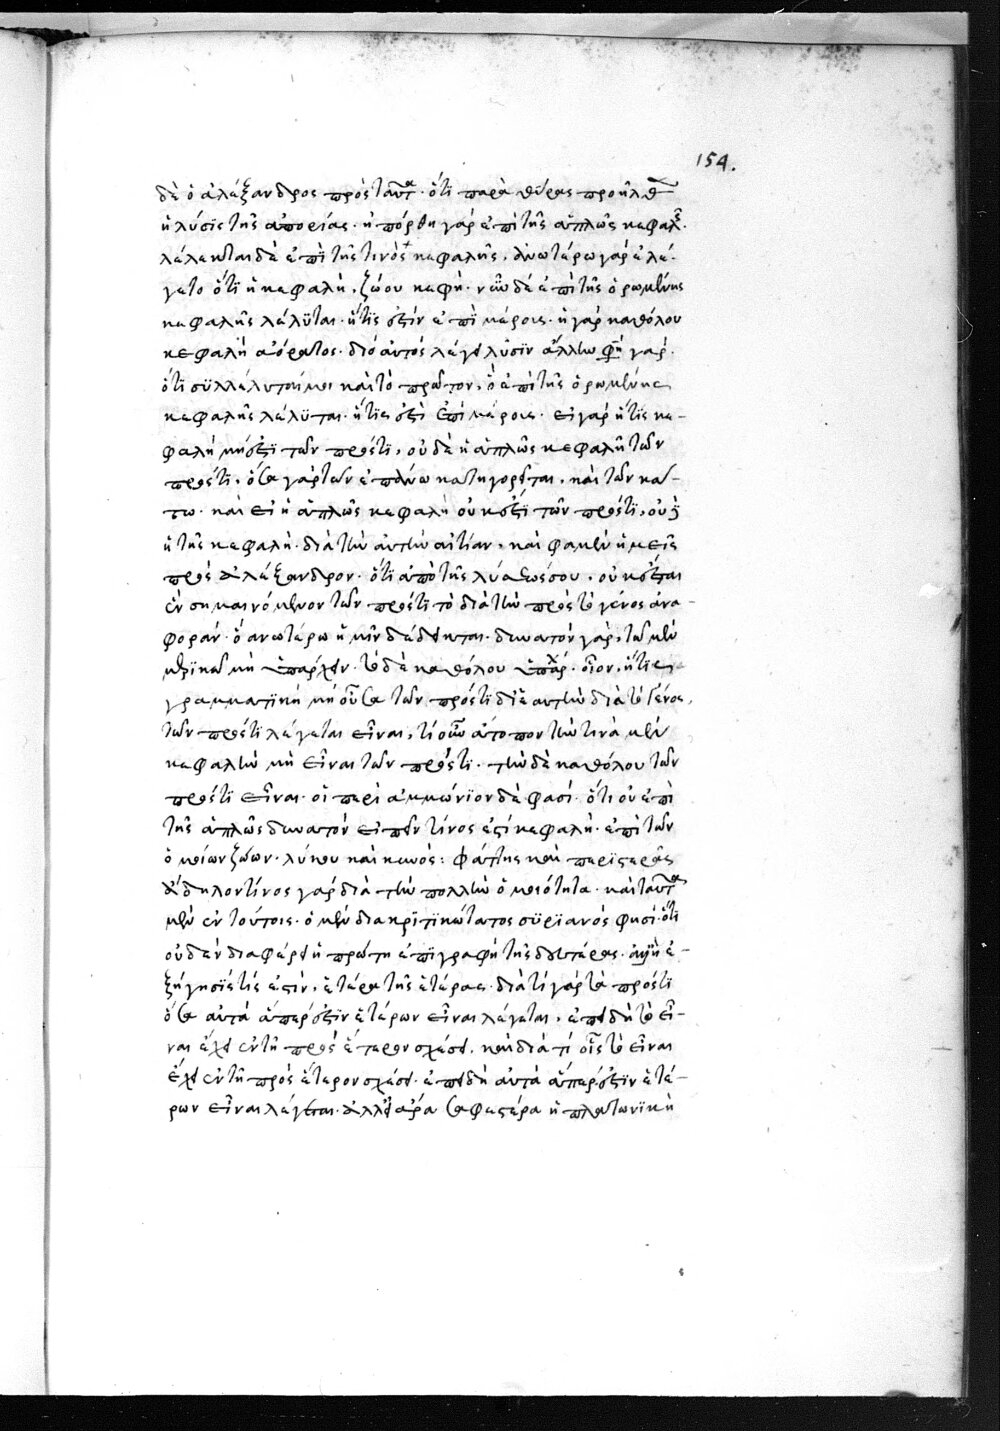 154.
δὲ ὁ ἀλέξανδρος πρὸς ταῦτα· ὅτι παρὰ θύρας προῆλθεν
ἡ λύσις τῆς ἀπορίας· ἠπόρθη γὰρ ἐπὶ τῆς ἁπλῶς κεφαλῆς·
λέλεκται δὲ ἐπὶ τῆς τινὸς κεφαλῆς, ἀνωτέρω γὰρ ἐλέ-
γετο ὅτι ἡ κεφαλή, ζώου κεφή· νῦν δὲ ἐπὶ τῆς ὁρωμένης
κεφαλῆς λέλυται· ἥτις ἐστὶν ἐπὶ μέρους· ἡ γὰρ καθόλου
κεφαλὴ ἀόρατος· διὸ αὐτὸς λέγει λύσιν ἄλλην φησὶ γάρ·
ὅτι συλλέλυταί μοι καὶ τὸ πρῶτον, ὃ ἐπὶ τῆς ὁρωμένης
κεφαλῆς λέλυται· ἥτις ἐστὶ ἐπὶ μέρους· εἰ γὰρ ἥτις κε-
φαλὴ μή ἐστι τῶν πρός τι, οὐδὲ ἡ ἁπλῶς κεφαλὴ τῶν
πρός τι, ὅσα γὰρ τῶν ἐπάνω κατηγορεῖται, καὶ τῶν κά-
τω· καὶ εἰ ἡ ἁπλῶς κεφαλὴ οὐκ ἔστι τῶν πρός τι, οὐδὲ
ἡ τὶς κεφαλή· διὰ τὴν αὐτὴν αἰτίαν, καὶ φαμὲν ἡμεῖς
πρὸς ἀλέξανδρον· ὅτι ἀπὸ τῆς λύσεώς σου, οὐκ ἔσται
ἓν σημαινόμενον τῶν πρός τι τὸ διὰ τὴν πρὸς τὸ γένος ἀνα-
φοράν· ὃ ἀνωτέρω ἡμῖν δέδεικται· δυνατὸν γὰρ, τῶ μὲν
μερικῶ μὴ ὑπάρχειν· τὸ δὲ καθόλου ὑπάρχ· οἷον, ἥτις
γραμματικὴ μὴ οὖσα τῶν πρός τι δι' ἑαυτὴν διὰ τὸ γένος,
τῶν πρός τι λέγεται εἶναι, τί οὖν ἄτοπον τὴν τινὰ μὲν
κεφαλὴν μὴ εἶναι τῶν πρός τι· τὴν δὲ καθόλου τῶν
πρός τι εἶναι· οἱ περὶ ἀμμώνιον δέ φασι· ὅτι οὐ ἐπὶ
τῆς ἁπλῶς δυνατὸν εἰπεῖν τίνος ἐστὶ κεφαλή· ἐπὶ τῶν
ὁμοίων ζώων· λύκου καὶ κυνός: φάττης καὶ περιστερᾶς
ἄδηλον τίνος γὰρ διὰ τὴν πολλὴν ὁμοιότητα· καὶ ταῦτα
μὲν ἐν τούτοις· ὁ μὲν διακριτικώτατος συριανός φησι· ὅτι
οὐδὲν διαφέρει ἡ πρώτη ἐπιγραφὴ τῆς δευτέρας· ἐξ-
ήγησίς τίς ἐστιν, ἑτέρα τῆς ἑτέρας· διὰ τί γὰρ τὰ πρός τι
ὅσα αὐτὰ ἅπερ ἐστὶν ἑτέρων εἶναι λέγεται, ἐπειδὴ τὸ εἶ-
ναι ἔχει ἐν τῆ πρὸς ἕτερον σχέσει, καὶ διὰ τί οἷς τὸ εἶναι
ἔχει ἐν τῆ πρὸς ἕτερον σχέσει· ἐπειδὴ αὐτὰ ἅπερ ἐστὶν ἑτέ-
ρων εἶναι λέγεται· ἀλλ' ἆρα σαφεστέρα ἡ πλατωνικὴ